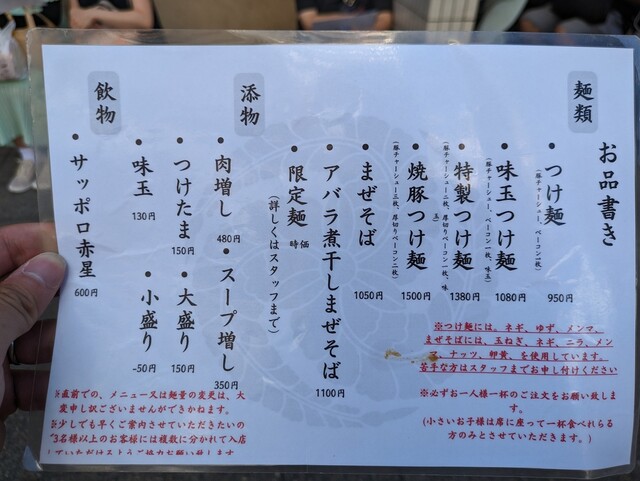 お品書き
麺類
・つけ麺
(豚チャーシュー、ベーコン一枚)
950円
・味玉つけ麺
(豚チャーシュー、ベーコン一枚、味玉)
1080円
・特製つけ麺
(豚チャーシュー二枚、厚切りベーコン一枚、味玉)
1380円
・焼豚つけ麺
(豚チャーシュー三枚、厚切りベーコン二枚)
1500円
・まぜそば
1050円
・アバラ煮干しまぜそば
1100円
・限定麺 時価
(詳しくはスタッフまで)
添物
・肉増し
480円
・スープ増し
350円
・つけたま
150円
・大盛り
150円
・味玉
130円
・小盛り
-50円
飲物
・サッポロ赤星
600円
※つけ麺には、ネギ、ゆず、メンマ、
まぜそばには、玉ねぎ、ネギ、ニラ、メン
、ナッツ、卵黄、を使用しています。
苦手な方はスタッフまでお申し付けください
※必ずお一人様一杯のご注文をお願い致しま
す。
(小さいお子様は席に座って一杯食べれらる
方のみとさせていただきます。)
※直前での、メニュー又は麺量の変更は、大
変申し訳ございませんができかねます。
※少しでも早くご案内させていただきたいの
3名様以上のお客様には複数に分かれて入店
していただけるようご協力お願い致します